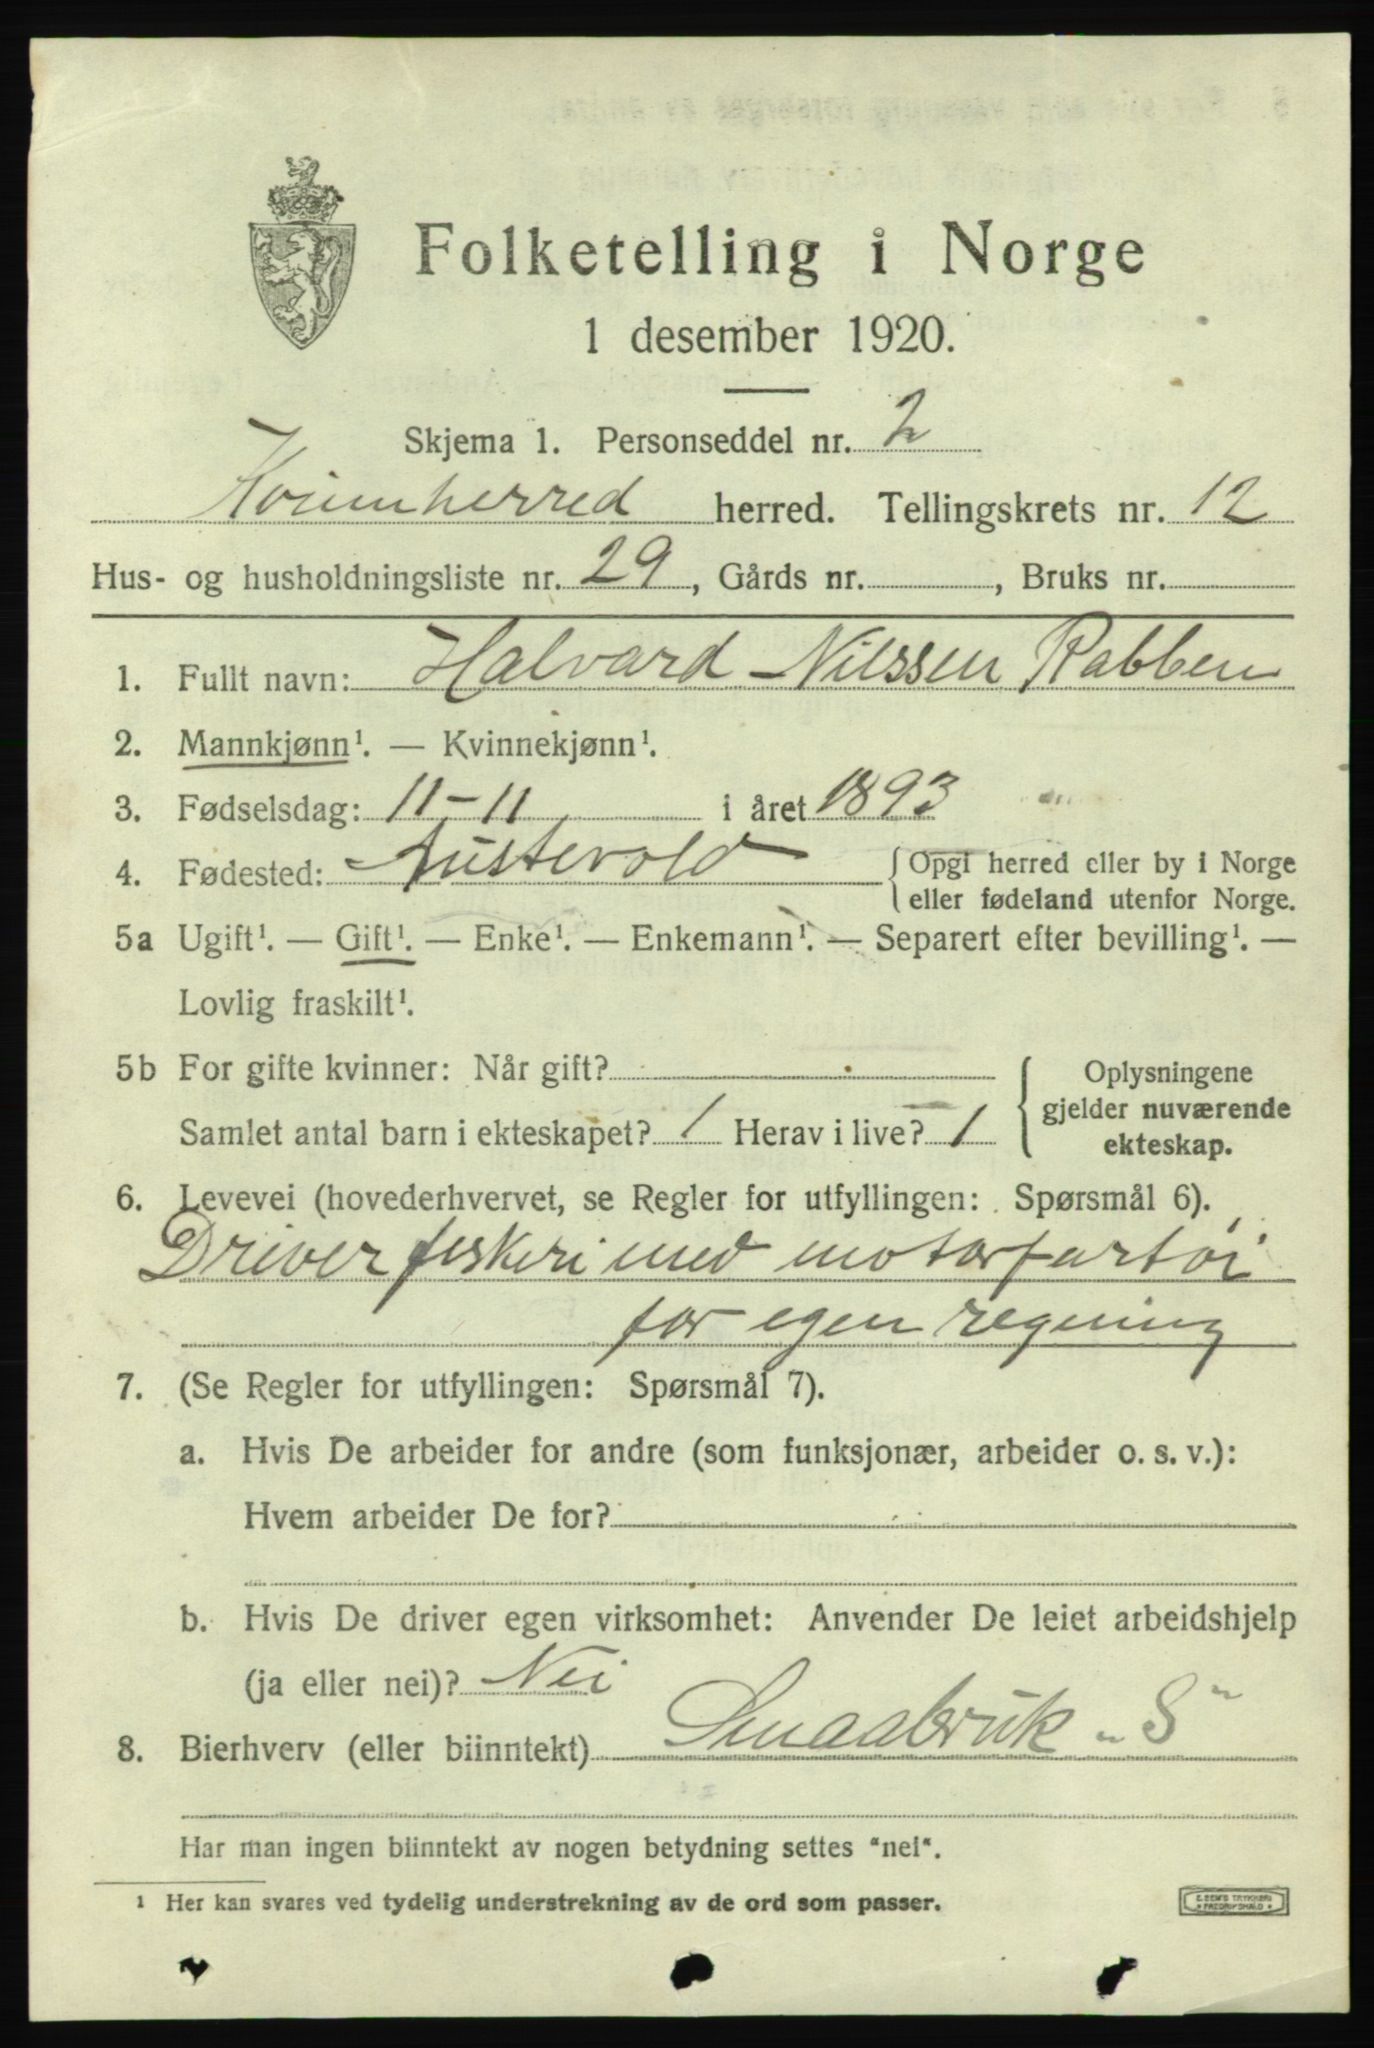 Folketelling i Norge
1 desember 1920.
Skjema 1. Personseddel nr. 2
Kvinnherred herred. Tellingskrets nr. 12
Hus- og husholdningsliste nr. 29, Gårds nr. , Bruks nr.
1. Fullt navn: Halvard Nilssen Rabben
2. Mannkjønn¹. — Kvinnekjønn¹.
3. Fødselsdag: 11-11 i året 1893
4. Fødested: Austevold { Opgi herred eller by i Norge
eller fødeland utenfor Norge.
5a Ugift¹. — Gift¹. — Enke¹. — Enkemann¹. — Separert efter bevilling¹. —
Lovlig fraskilt¹.
5b For gifte kvinner: Når gift?
Samlet antal barn i ekteskapet? 1 Herav i live? 1
Oplysningene
gjelder nuværende
ekteskap.
6. Levevei (hovederhvervet, se Regler for utfyllingen: Spørsmål 6).
Driver fiskeri med motorfartöi
for egen regning
7. (Se Regler for utfyllingen: Spørsmål 7).
a. Hvis De arbeider for andre (som funksjonær, arbeider o. s. v.):
Hvem arbeider De for?
b. Hvis De driver egen virksomhet: Anvender De leiet arbeidshjelp
(ja eller nei)? Nei
8. Bierhverv (eller biinntekt) Smaabruk "S"
Har man ingen biinntekt av nogen betydning settes "nei".
¹ Her kan svares ved tydelig understrekning av de ord som passer.
E. SEM'S TRYKKERI
FREDRIKSHALD